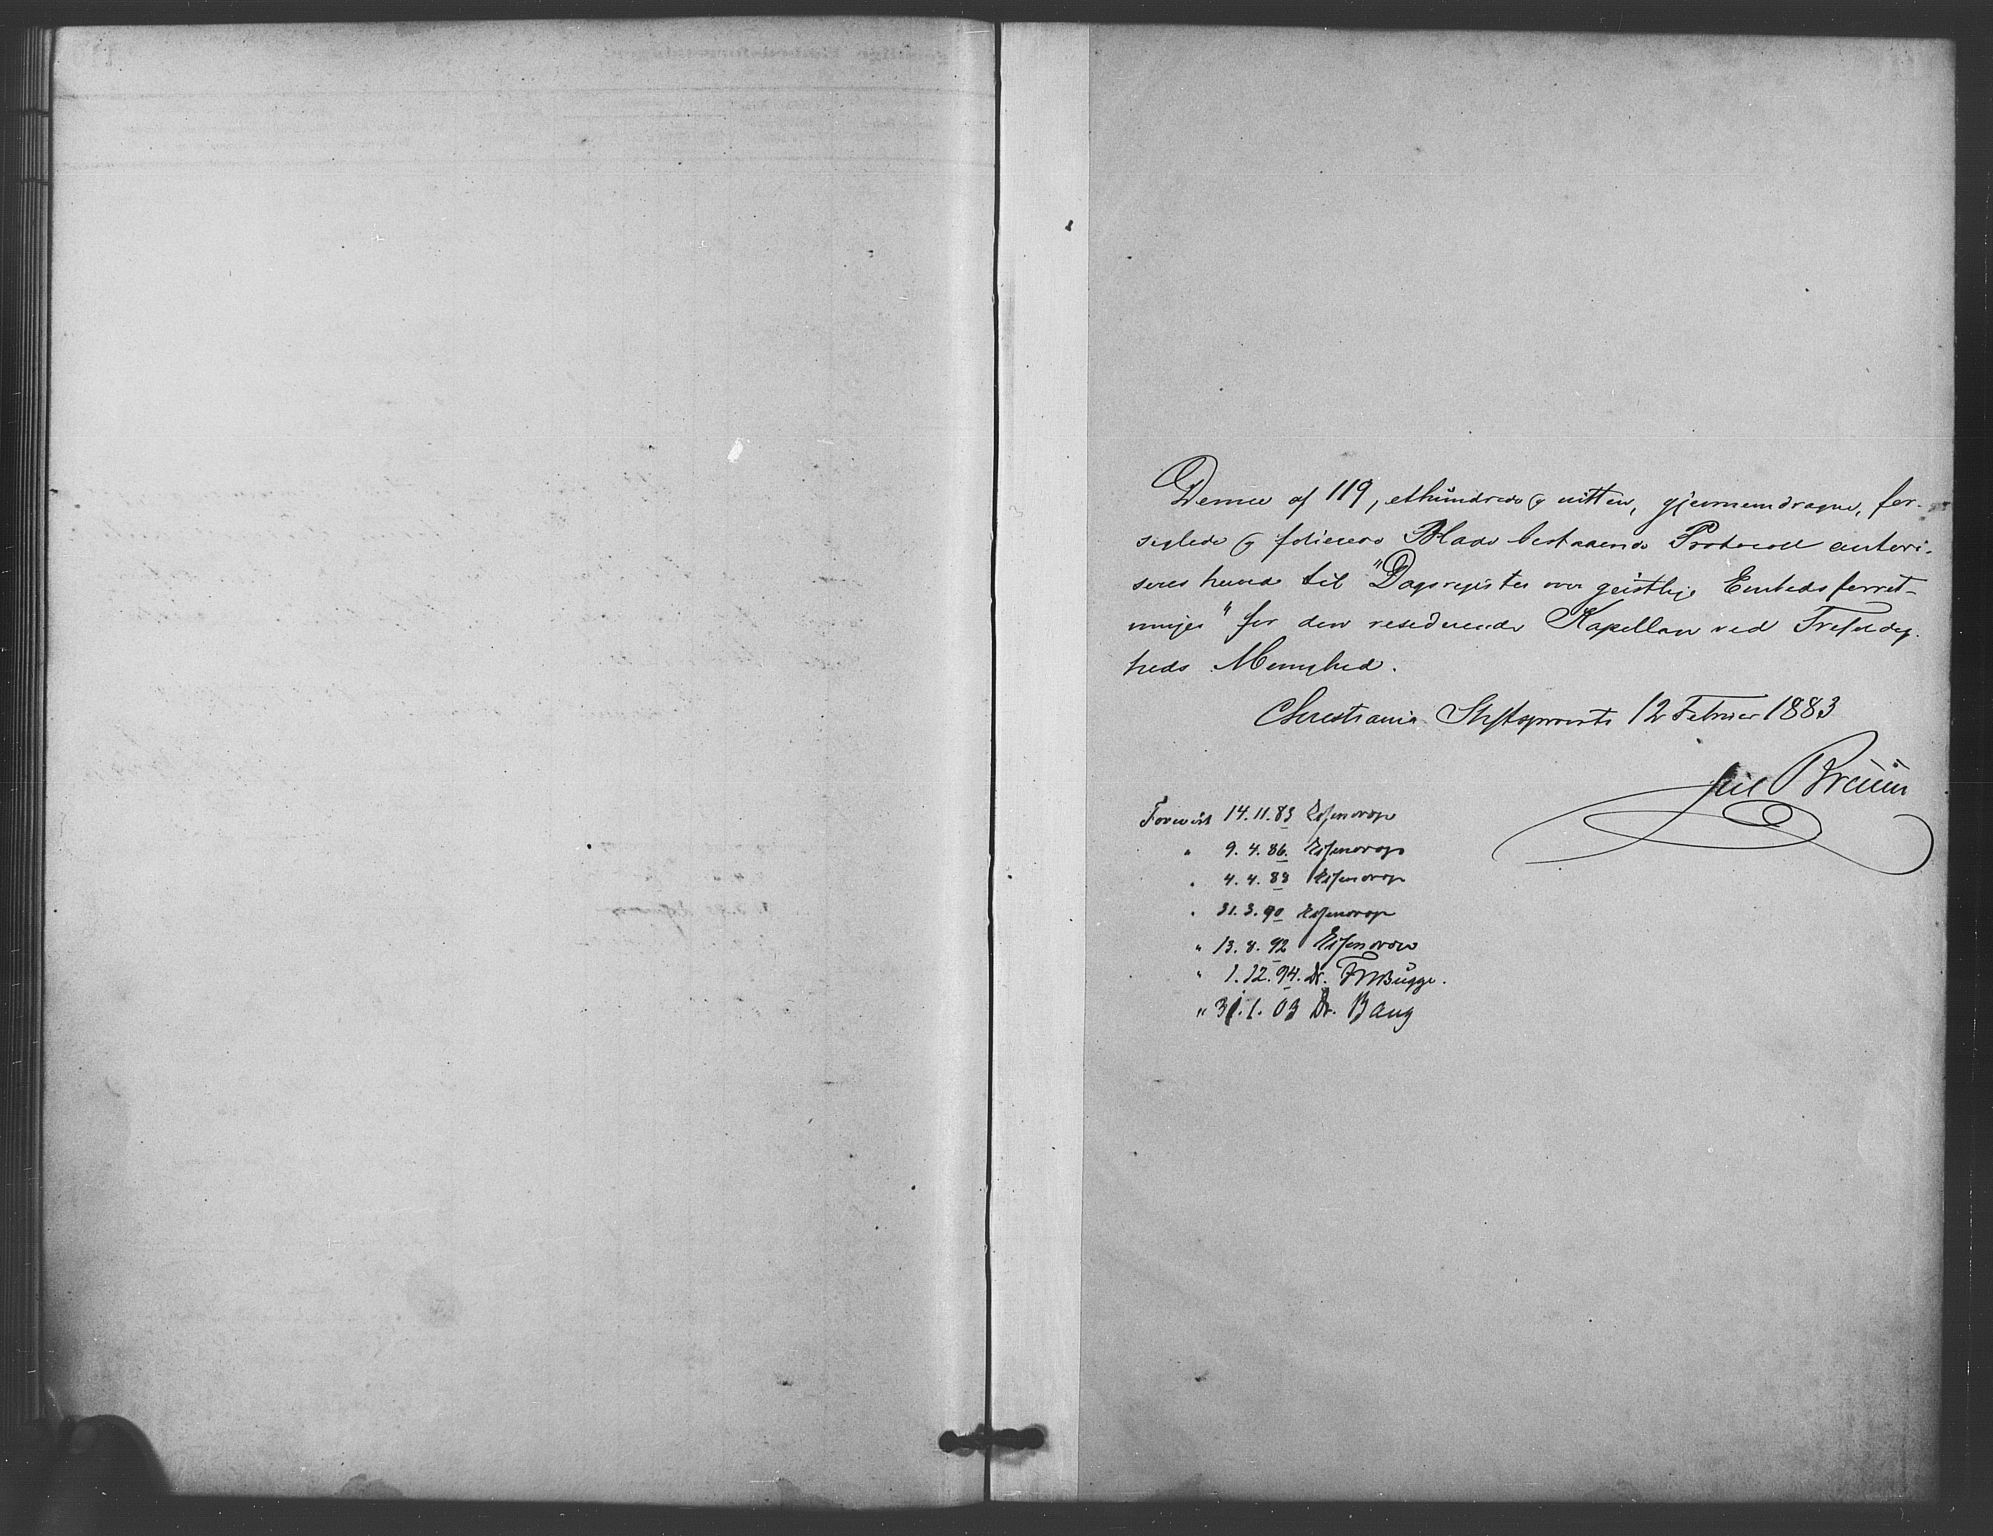 Denne af 119, ethundrede & nitten, gjennemdragne, for-
seglede & folierede Blade bestaaende Protocoll autori-
seres herved til "Dagsregister over geistlige Embedsforret-
ninger" for den residerende Kapellan ved Trefoldig-
heds Menighed.
Christiania Stiftsprovsti 12 Februar 1883
Jul Bruun
Forevist 14.11.83 Essendrop
" 9.4.86. Essendrop
" 4.4.88 Essendrop
" 31.3.90 Essendrop
" 13.8.92 Essendrop
" 1.12.94. Dr. FWBugge.
" 31.1.03 Dr. Bang